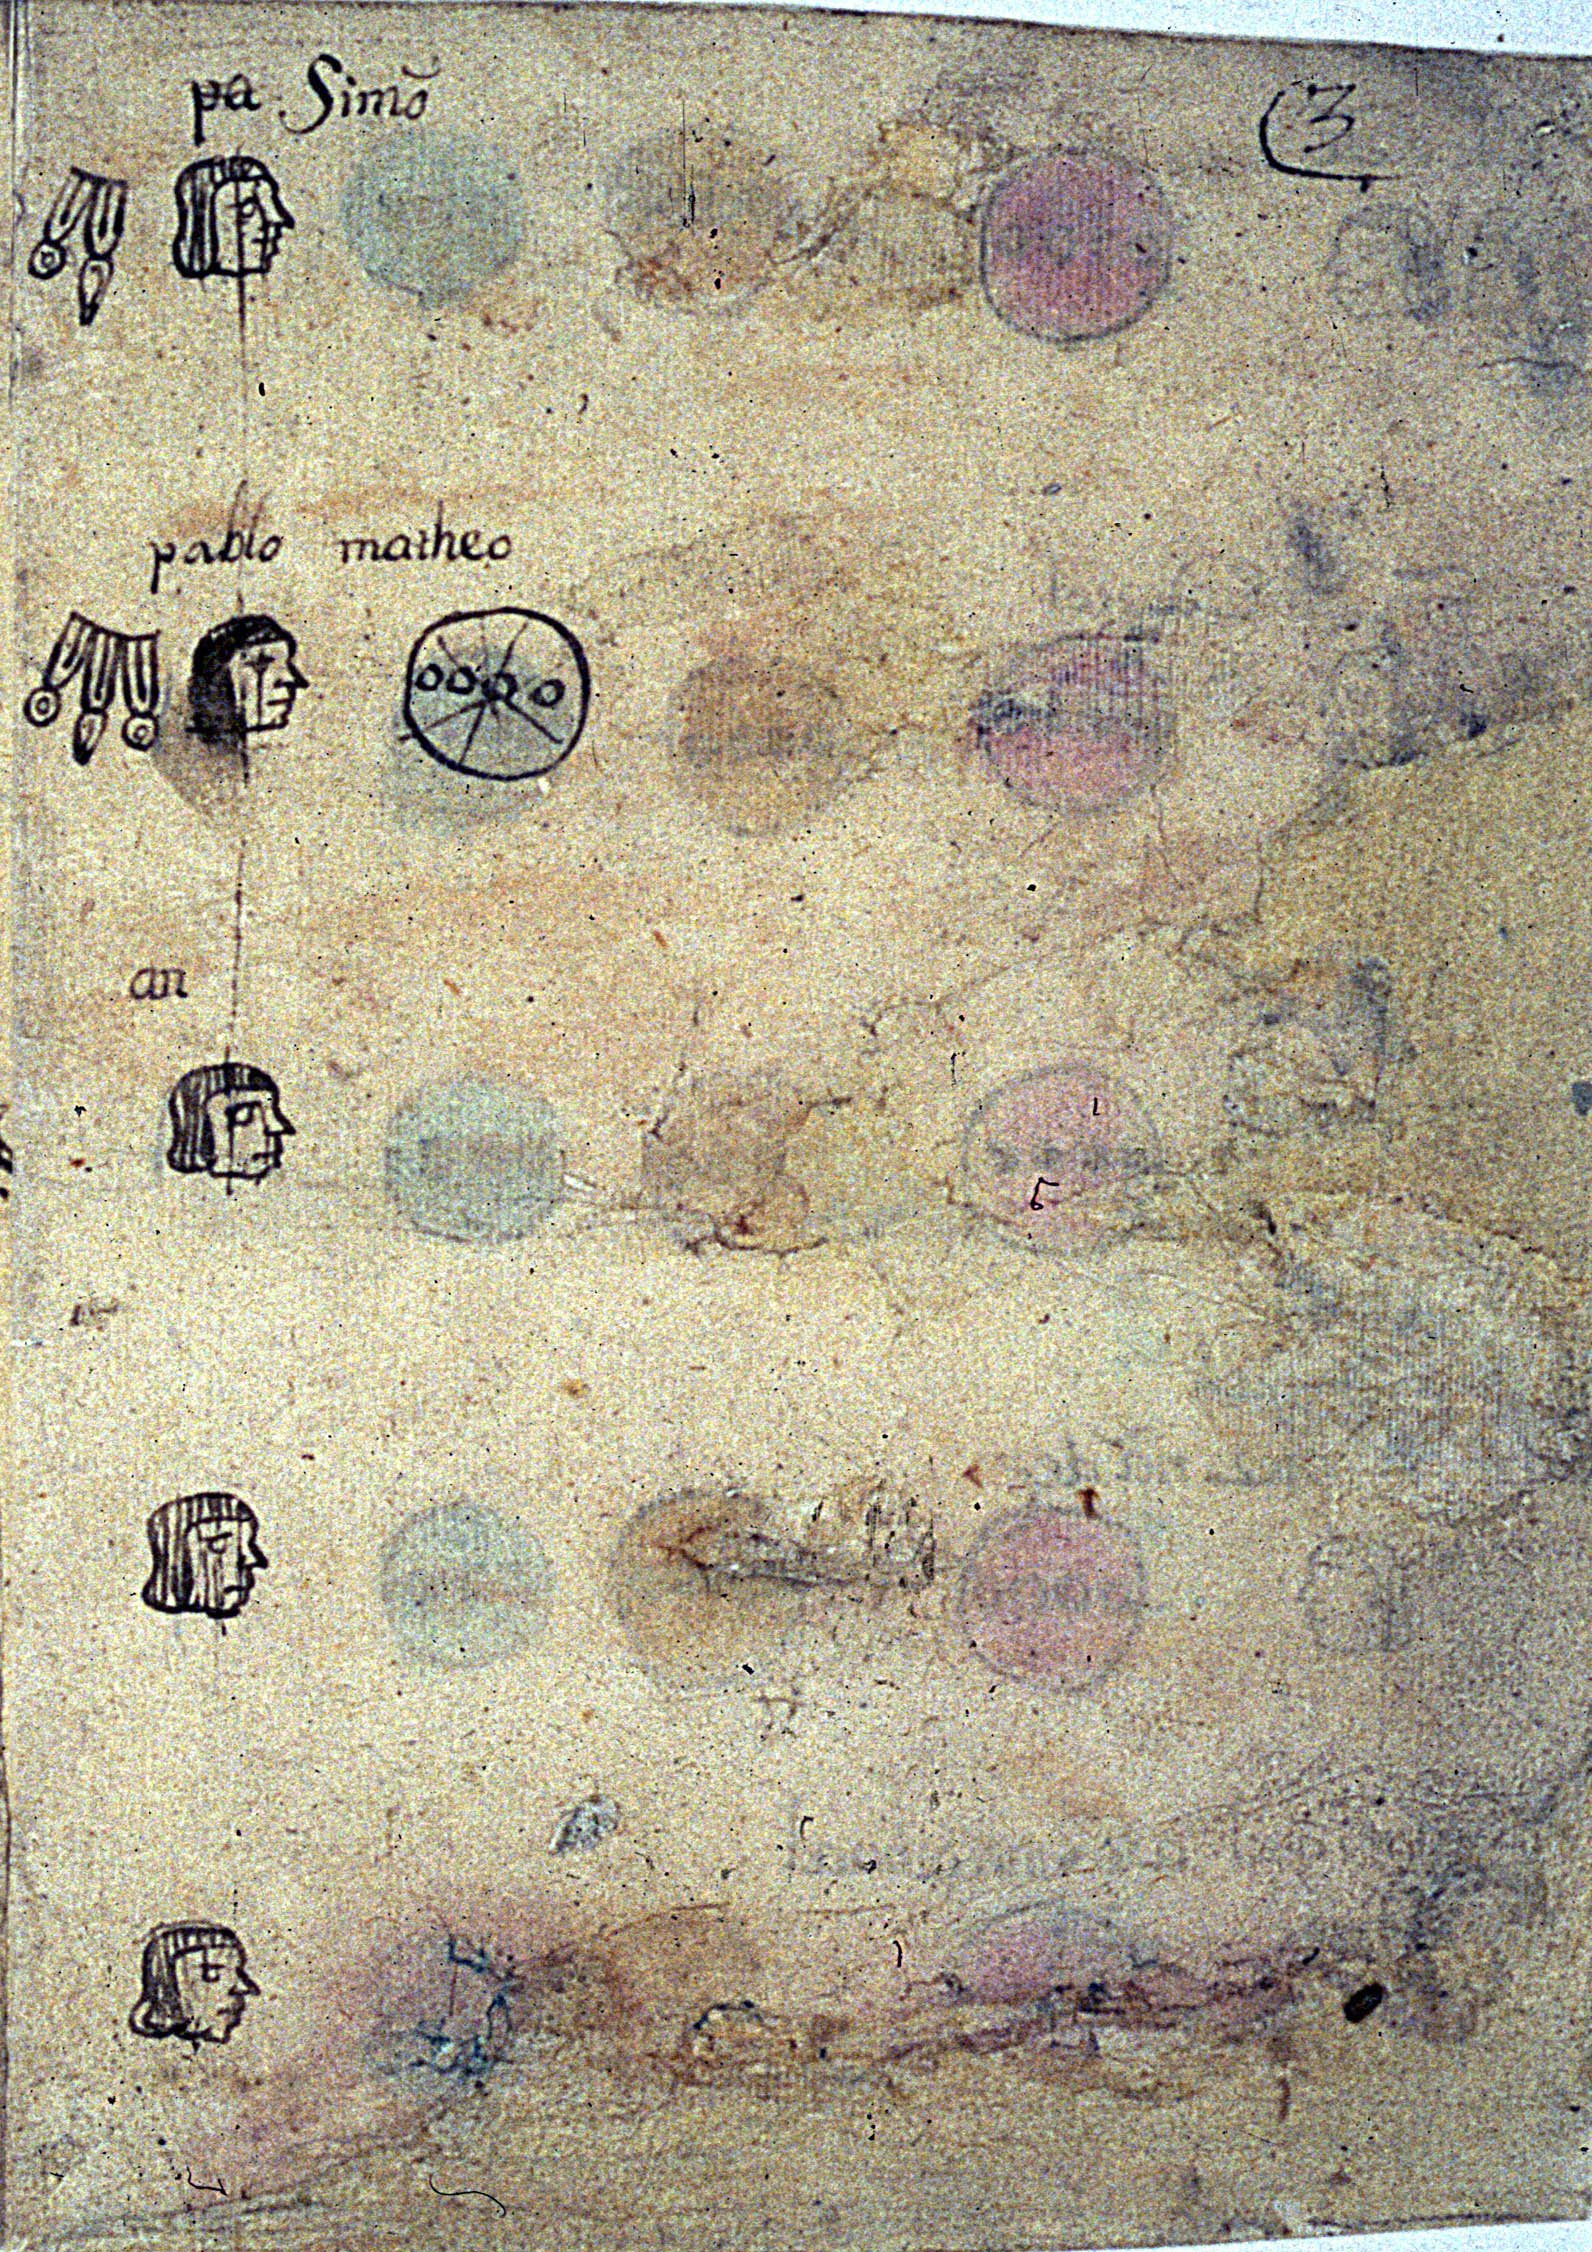 pa Simõ
3
pablo matheo
an